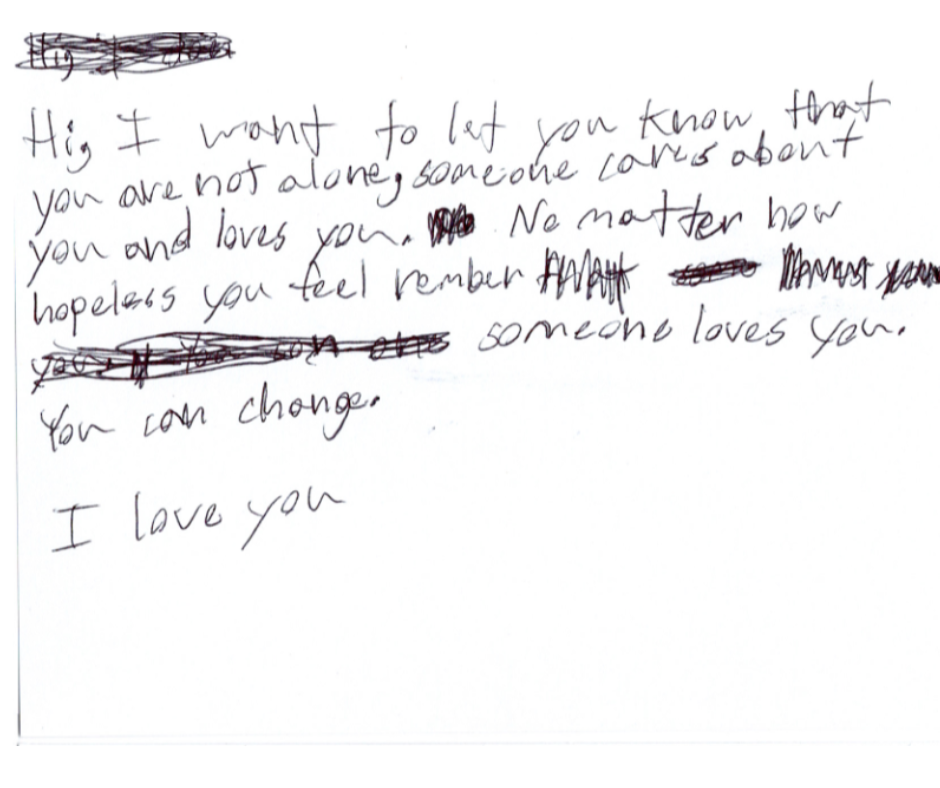 Hi, I want to let you know that
you are not alone, someone cares about
you and loves you. No matter how
hopeless you feel rember
someone loves you.
You can change.
I love you